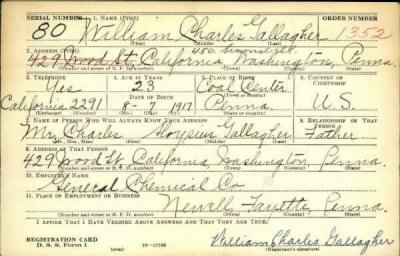 SERIAL NUMBER 1. NAME (Print) ORDER NUMBER
80 William Charles Gallagher 1352
(First) (Middle) (Last)
2. ADDRESS (Print) 450 Second St.
429 Wood St. California, Washington, Penna.
(Number and street or R. F. D. number) (Town) (County) (State)
3. TELEPHONE 4. AGE IN YEARS 5. PLACE OF BIRTH 6. COUNTRY OF CITIZENSHIP
Yes 23 Coal Center
DATE OF BIRTH (Town or county)
California 2291 8-7 1917 Penna. U.S.
(Exchange) (Number) (Mo.) (Day) (Yr.) (State or country)
7. NAME OF PERSON WHO WILL ALWAYS KNOW YOUR ADDRESS 8. RELATIONSHIP OF THAT PERSON
Mr. Charles Aloysius Gallagher Father
(Mr., Mrs., Miss) (First) (Middle) (Last)
9. ADDRESS OF THAT PERSON
429 Wood St. California, Washington, Penna
(Number and street or R. F. D. number) (Town) (County) (State)
10. EMPLOYER'S NAME
General Chemical Co
11. PLACE OF EMPLOYMENT OR BUSINESS
Newell Fayette, Penna.
(Number and street or R. F. D. number) (Town) (County) (State)
I AFFIRM THAT I HAVE VERIFIED ABOVE ANSWERS AND THAT THEY ARE TRUE.
REGISTRATION CARD
D. S. S. Form 1 (over) William Charles Gallagher
(Registrant's signature)